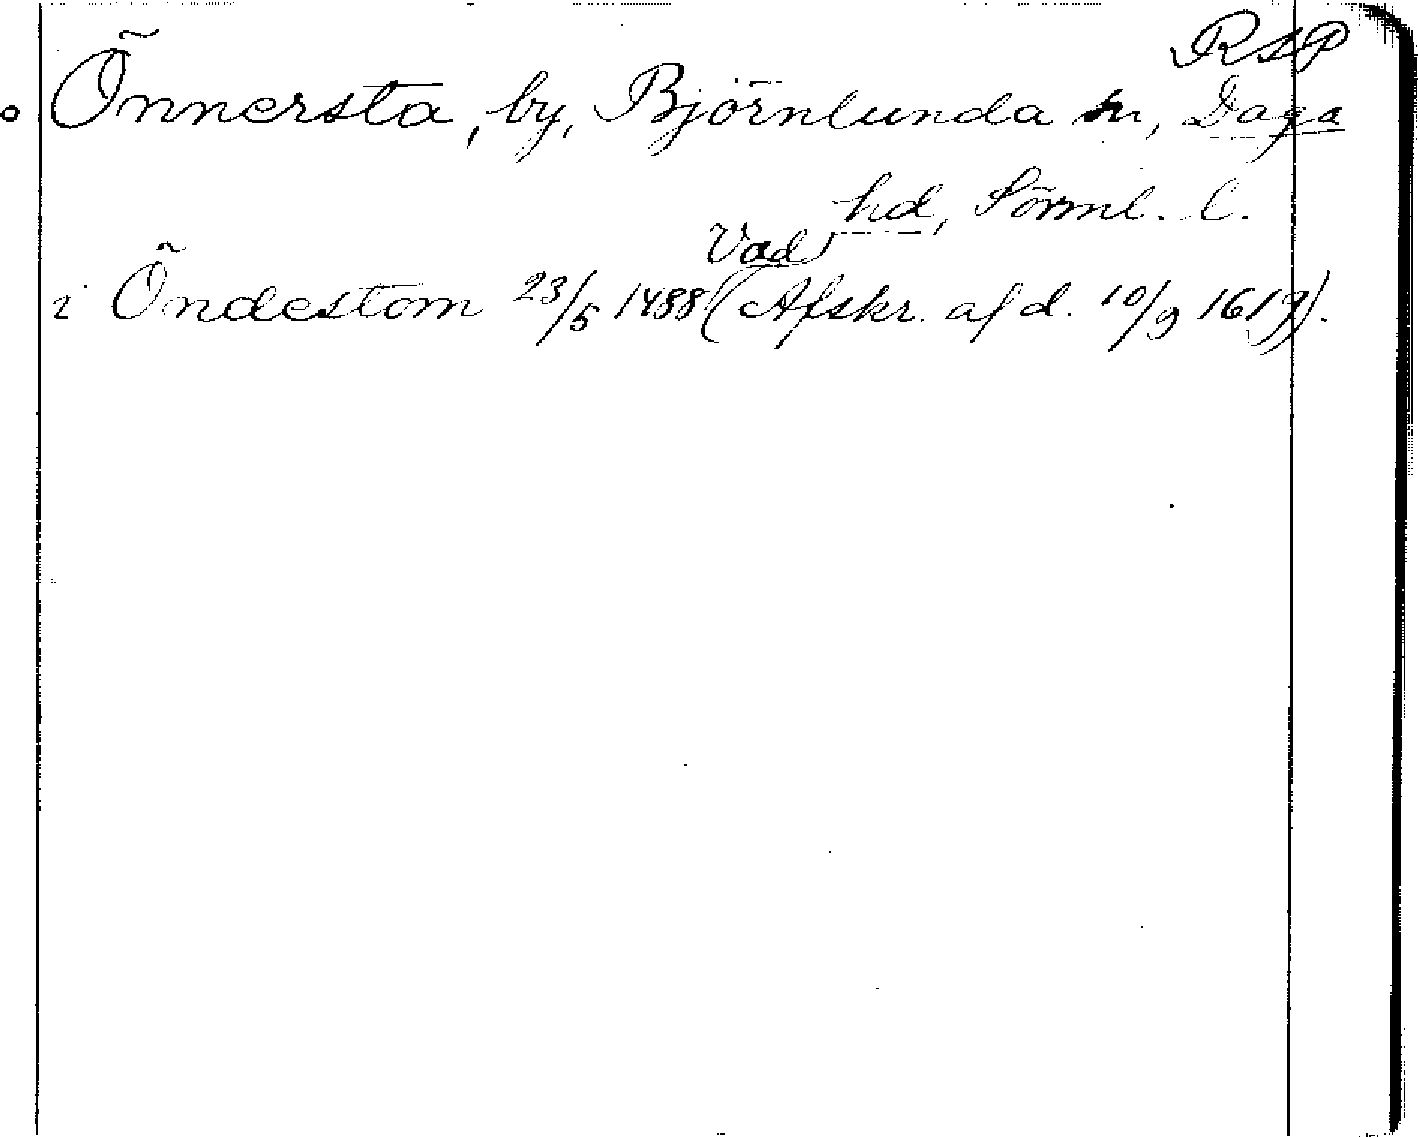 RAP
Õnnersta, by, Björnlunda sn, Daga
hd, Sörml. l.
Vad
i Õndestom 23/5 1488 (Afskr. af d. 10/9 1619).